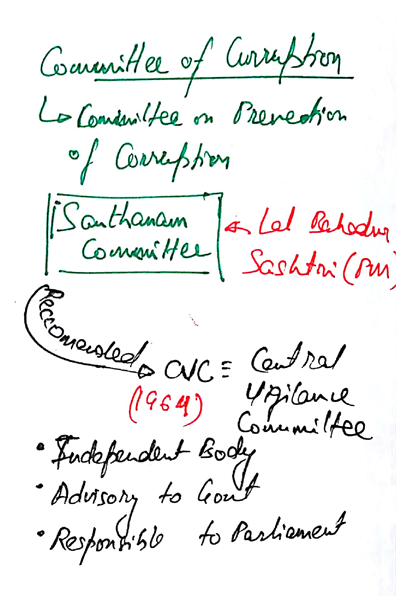 Committee of Curruption
↳ Committee on Prevention
of Corruption
Santhanam ← Lal Bahadur
Committee Sashtri (PM)
Reccomended
→ CVC ≡ Central
(1964) Vigilance
Committee
• Independent Body
• Advisory to Govt
• Responsible to Parliament